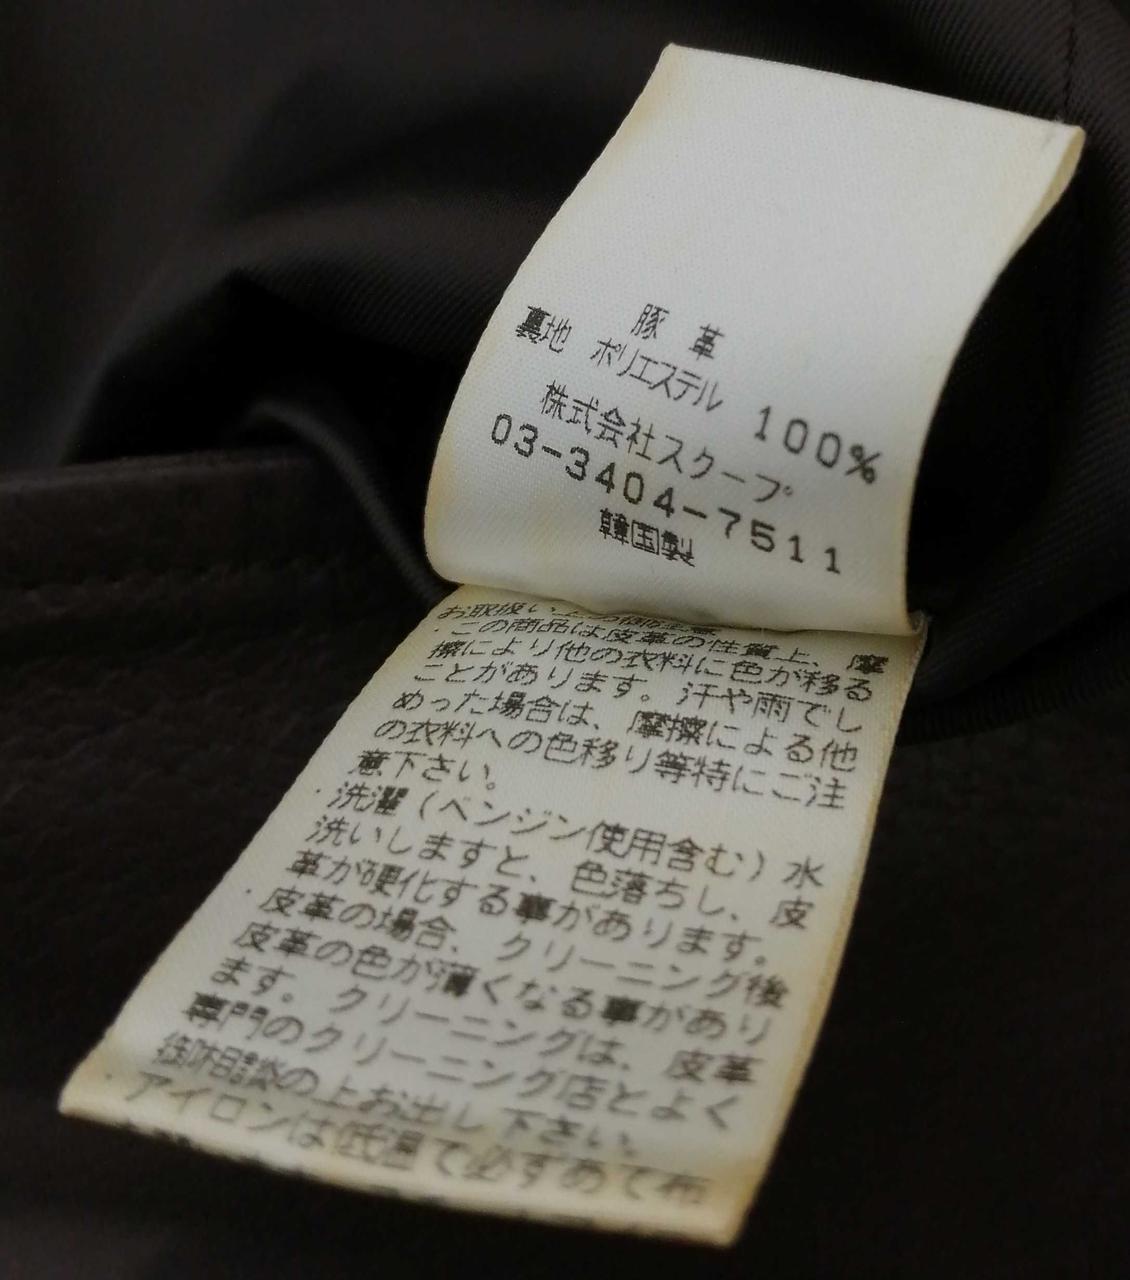 豚 革
裏地 ポリエステル 100%
株式会社スクープ
03-3404-7511
韓国製
お取扱い上の御注意
・この商品は皮革の性質上、摩
擦により他の衣料に色が移る
ことがあります。汗や雨でし
めった場合は、摩擦による他
の衣料への色移り等特にご注
意下さい。
・洗濯(ベンジン使用含む)水
洗いしますと、色落ちし、皮
革が硬化する事があります。
・皮革の場合、クリーニング後
皮革の色が薄くなる事があり
ます。クリーニングは、皮革
専門のクリーニング店とよく
御相談の上お出し下さい。
・アイロンは低温で必ずあて布